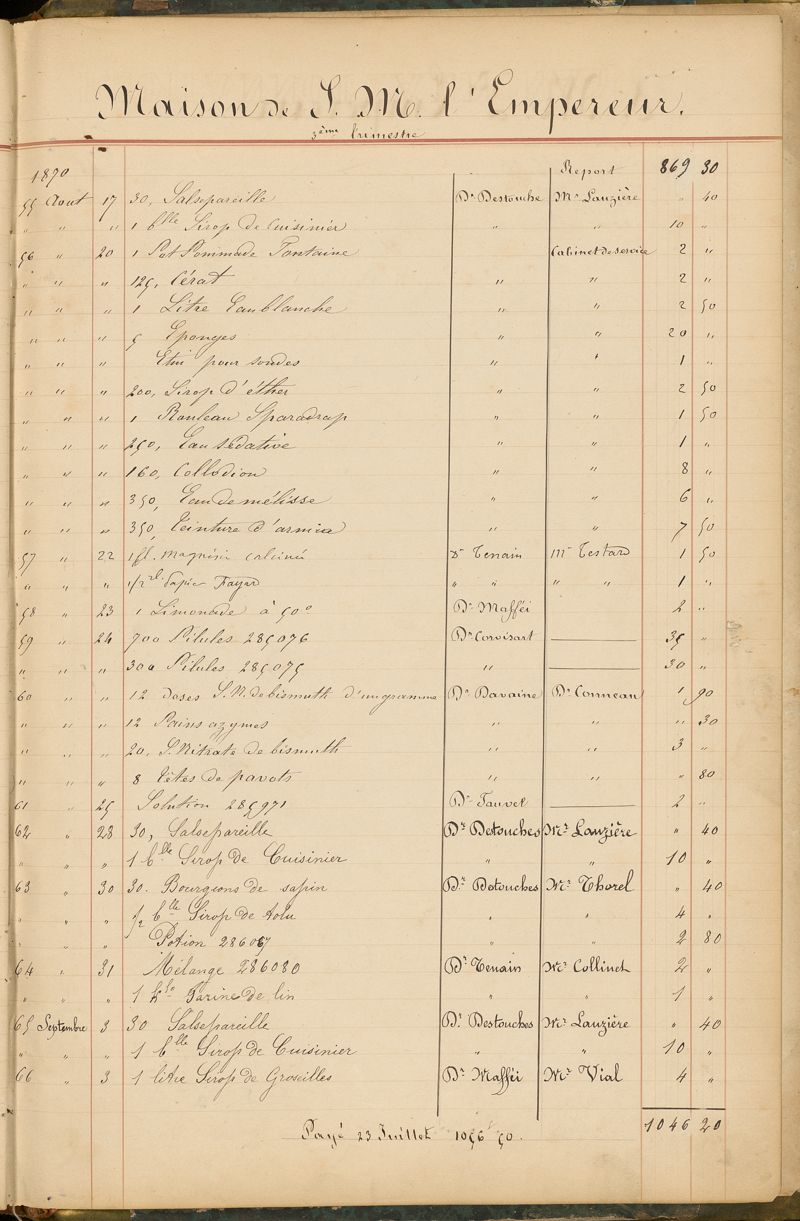 Maison de S. M. l'Empereur.
3ème trimestre
1870 Report 869 30
55 Aout 17 30, Salsepareille Dr Destouche Mr Lauzière " 40
" " " 1 blle Sirop de Cuisinier " " 10 "
56 " 20 1 Pot Pommade Fontaine Cabinet de service 2 "
" " " 125, Cérat " " 2 "
" " " 1 Litre Eau blanche " " 2 50
" " " 5 Eponges " " 20 "
" " " Etui pour sondes " " 1 "
" " " 200, Sirop d'éther " " 2 50
" " " 1 Rouleau Sparadrap " " 1 50
" " " 250, Eau sédative " " 1 "
" " " 160, Collodion " " 8 "
" " " 350, Eau de mélisse " " 6 "
" " " 350, Teinture d'arnica " " 7 50
57 " 22 1 fl. magnésie calcinée Dr Tenain Mr Testard 1 50
" " " 1/2 rl. papier Fayard " " " " 1 "
58 " 23 1 Limonade à 50° Dr Mafféi 2 "
59 " 24 700 Pilules 285076 Dr Corvisart 35 "
" " " 300 Pilules 285075 " 30 "
60 " " 12 doses S. N. de bismuth d'un gramme Dr Davaine Dr Conneau 1 90
" " " 12 Pains azymes " " " 30
" " " 20, S. Nitrate de bismuth " " 3 "
" " " 8 têtes de pavots " " " 80
61 " 25 Solution 285971 Dr Fauvel 2 "
62 " 28 30, Salsepareille Dr Detouches Mr Lauzière " 40
" " " 1 blle Sirop de Cuisinier " " 10 "
63 " 30 30. Bourgeons de sapin Dr Detouches Mr Thorel " 40
" " " 1/2 blle Sirop de tolu " " 4 "
" " " Potion 286067 " " 2 80
64 " 31 Mélange 286080 Dr Tenain Mr Collinet 2 "
" " " 1 klo Farine de lin " " 1 "
65 Septembre 3 30 Salsepareille Dr Destouches Mr Lauzière " 40
" " " 1 blle Sirop de Cuisinier " " 10 "
66 " 3 1 litre Sirop de Groseilles Dr Mafféi Mr Vial 4 "
1046 20
Payé 23 Juillet 1056 50.